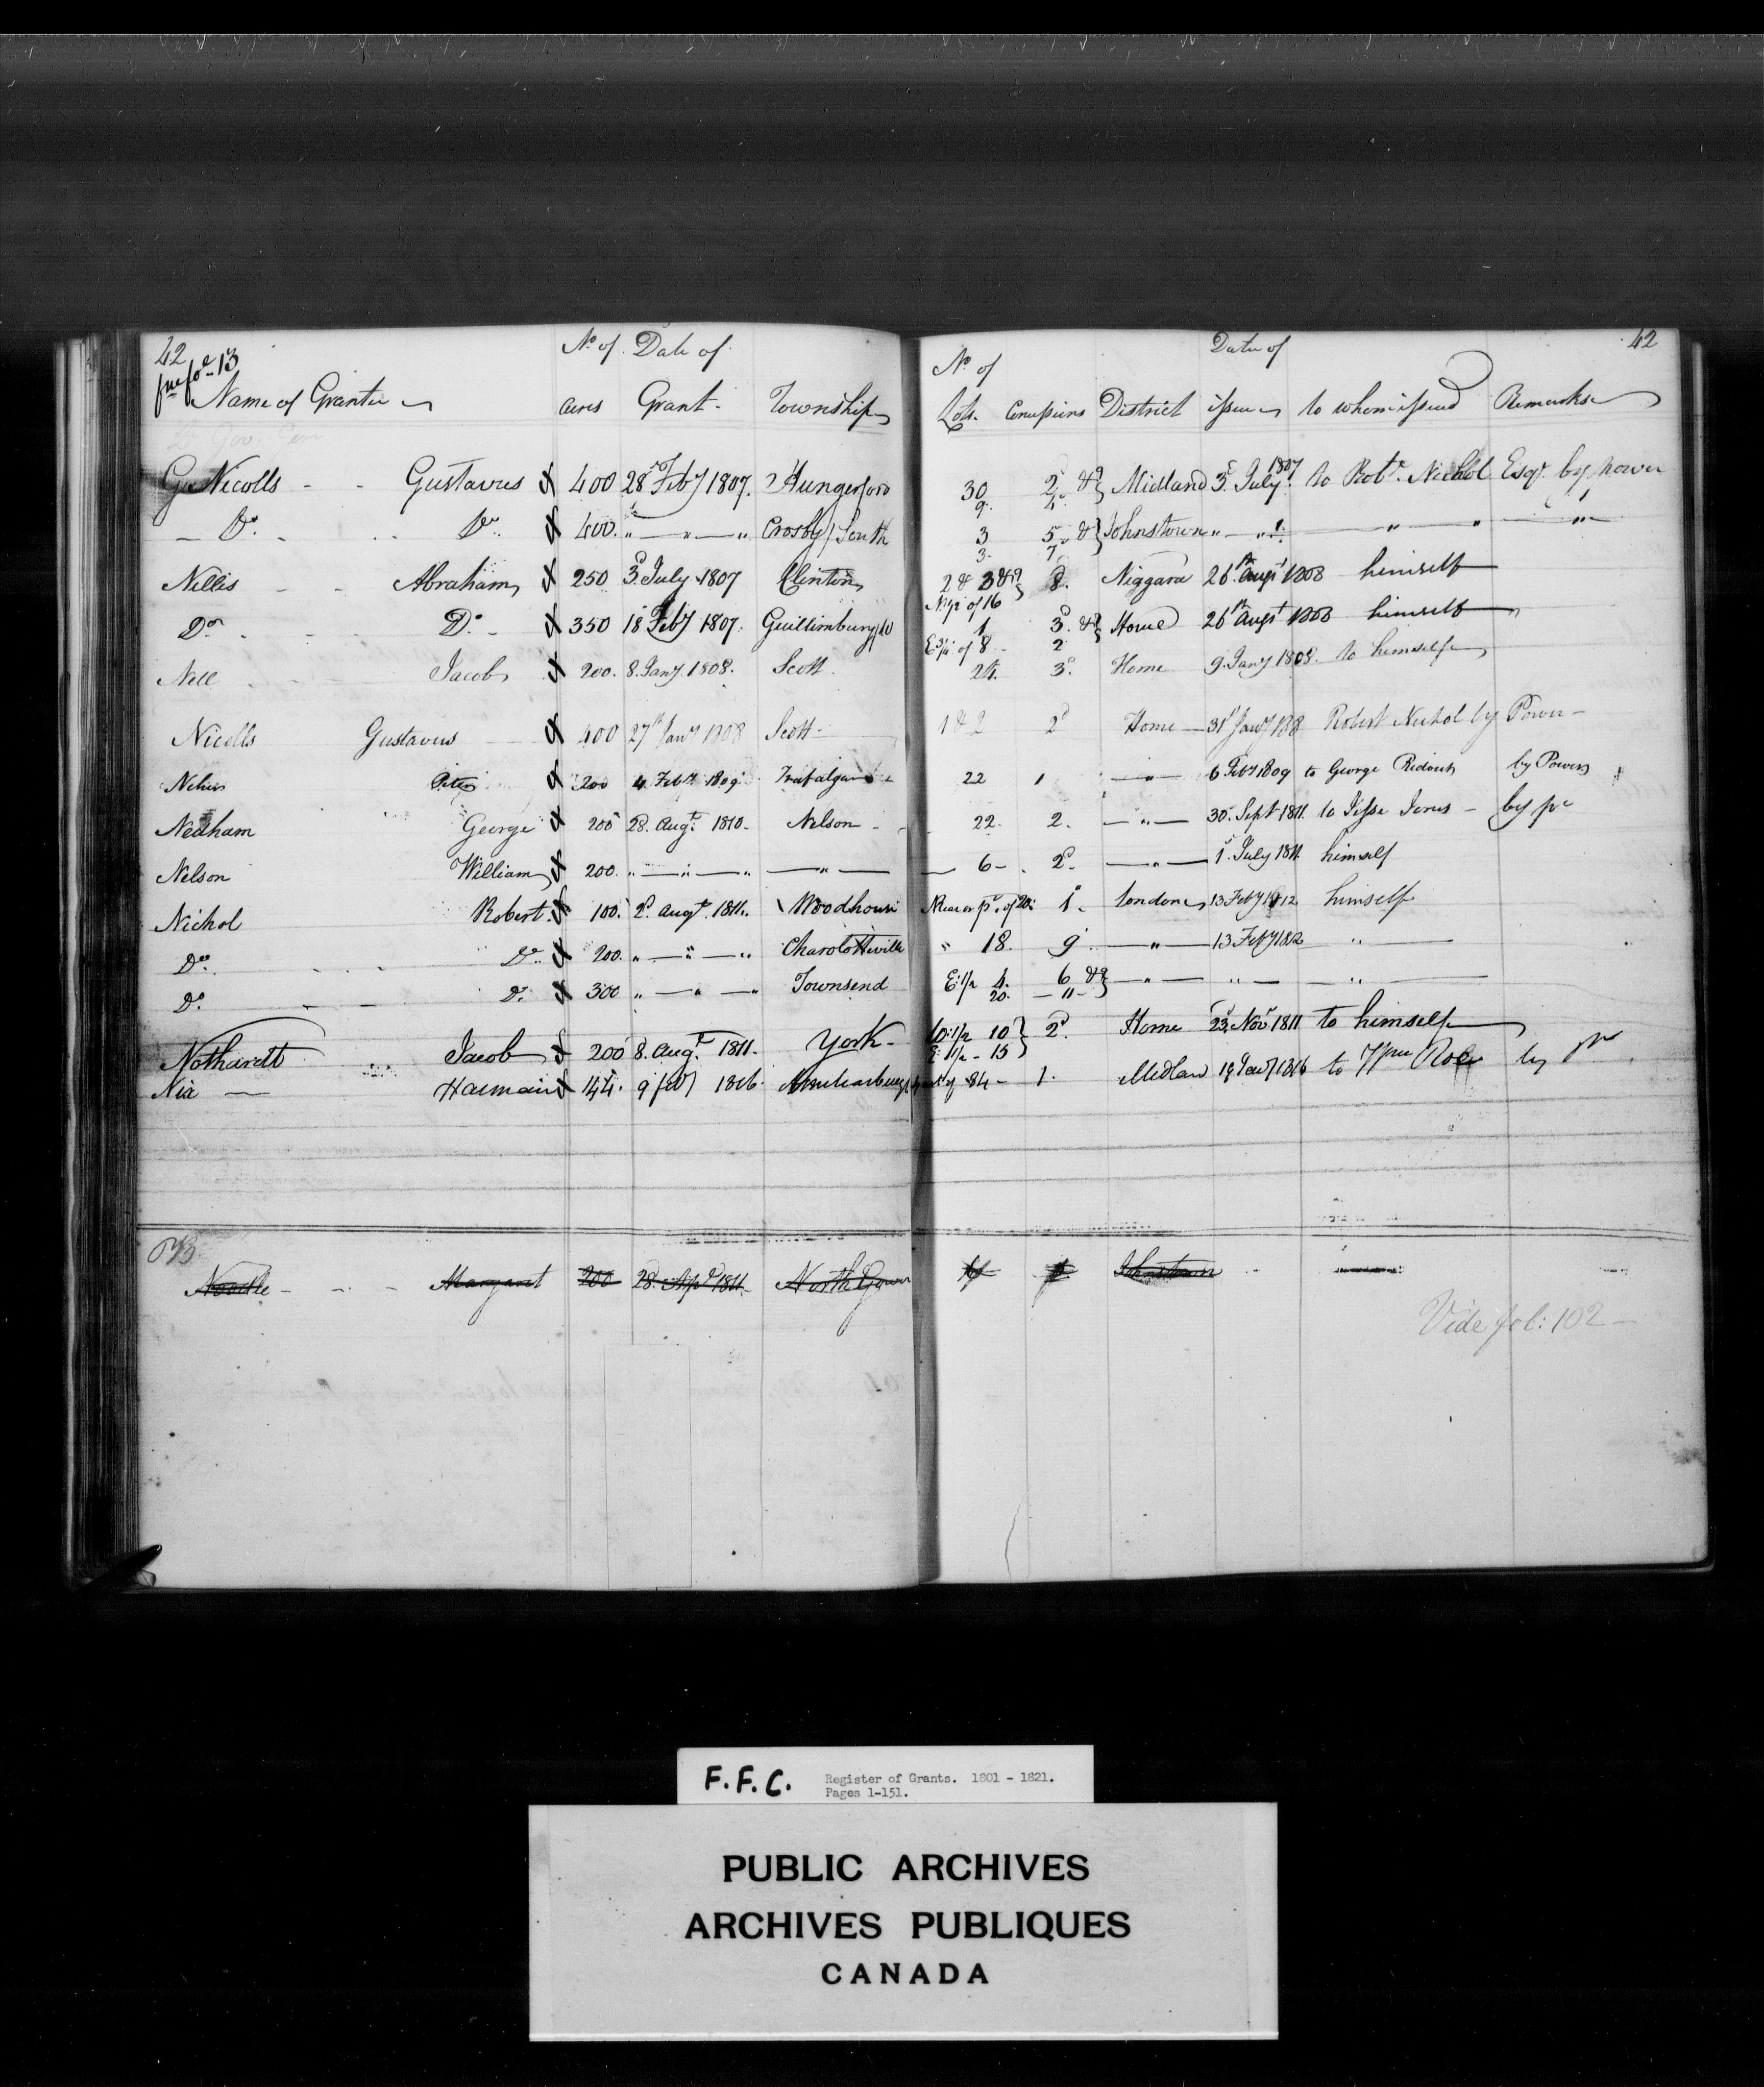 42 42
fm fo. 13
No of Date of No of Date of
Name of Grantee acres Grant Township Lots Concessions District issue to whom issued Remarks
Nicolls Gustavus 400 28 Feby 1807. Hungerford 30 2 & Midland 3 July 1807 to Robt. Nichol Esqr. by power
9 4
Do. Do. 400 " " " Crosby South 3 5 & Johnstown " " " " "
3 7
Nellis Abraham 250 3 July 1807 Clinton 2 & 3 & 8. Niggara 26th Augt 1808 himself
of 16
Do. Do. 350 18 Feby 1807. Guillimbury W 1 3 & Home 26th Augt 1808 himself
E 3/4 of 8 2
Nell Jacob 200. 8. Jany 1808. Scott 24. 3. Home 9. Jany 1808. to himself
Nicolls Gustavus 400 27th Jany 1808 Scott 1 & 2 2d Home 31st Jany 1808 Robert Nichol by Power
Peter 200 4 Feby 1809 Trafalgar 22 1 " 6 Feby 1809 to George Ridout by Power
Nedham George 200 28. Augt. 1810. Nelson 22. 2. " 30. Sept 1811. to Jesse Jones by pr
Nelson William 200. " " " " 6 2d " 1. July 1811. himself
Nichol Robert. 100. 2d. Augt. 1811. Woodhouse Rear or pt. of 20. 1. London 13 Feby 1812 himself
Do. Do. 200. " " " Charlotteville " 18. 9 " 13 Feby 1812 "
Do. Do. 300 " " " Townsend E 1/2 4. 6 & " " "
20. 11
Nothardt Jacob 200 8. Augt. 1811. York W 1/2 10 2d. Home 23. Novr 1811 to himself
E 1/2 15
Nix Harman 144. 9 1816. 84 1. Midland 19 Jany 1816 to by pr
Margaret 200 28. Apl 1811. North Gower Johnstown
Vide fol: 102
F.F.C. Register of Grants. 1801 - 1821.
Pages 1-151.
PUBLIC ARCHIVES
ARCHIVES PUBLIQUES
CANADA